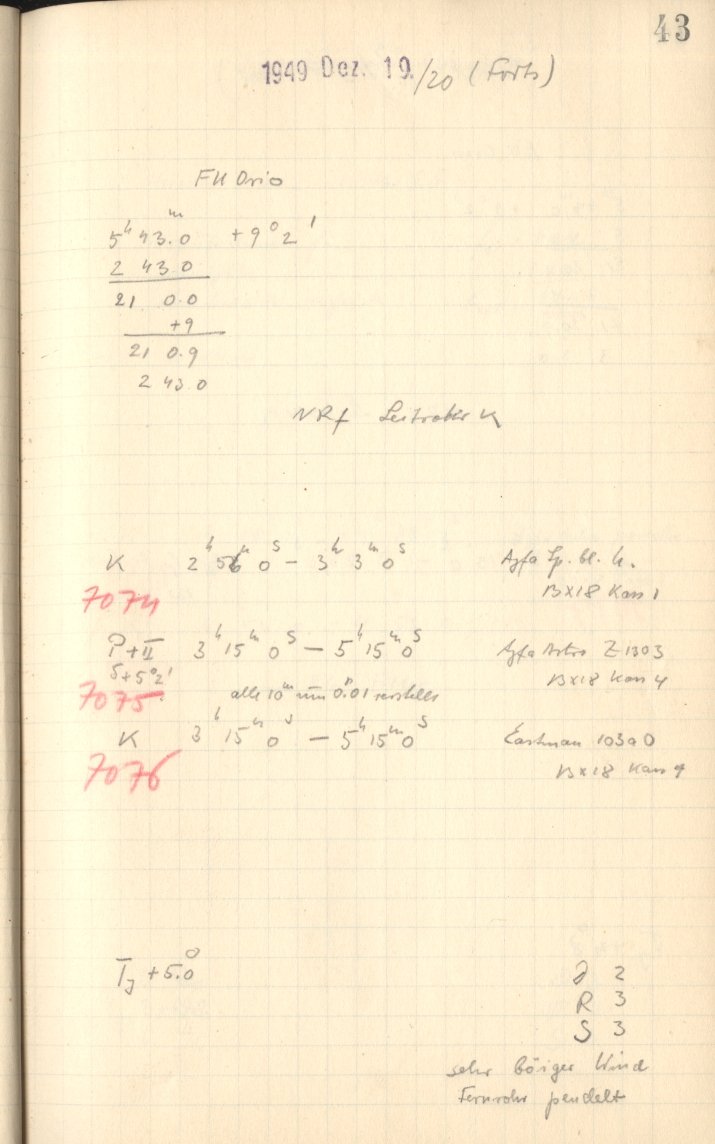 43
1949 Dez. 19./20 (Forts)
FU Orio
5ʰ 43.ᵐ0 +9° 2'
2 43 0
21 0.0
+9
21 0.9
2 43 0
NRf Leitrohr K
K 2ʰ 56ᵐ 0ˢ – 3ʰ 3ᵐ 0ˢ Agfa Sp. bl. h.
13x18 Kass 1
7074
P+II 3ʰ 15ᵐ 0ˢ – 5ʰ 15ᵐ 0ˢ Agfa Astro Z 1303
S+5°2' 13x18 Kass 4
7075 alle 10ᵐ um 0.01 verstellt
K 3ʰ 15ᵐ 0ˢ – 5ʰ 15ᵐ 0ˢ Eastman 103a0
13x18 Kass 9
7076
+5.°0
2
R 3
S 3
sehr böiger Wind
Fernrohr pendelt